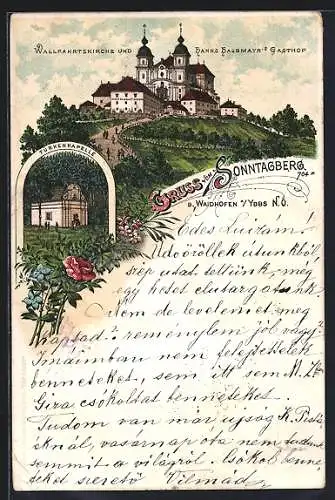 WALLFAHRTSKIRCHE UND HANNS HALBMAYR'S GASTHOF
TÜRKENKAPELLE
GRUSS VOM SONNTAGBERG
704 m
B. WAIDHOFEN A/YBBS N.Ö.
Édes Luizám!
Üdvözöllek útunkból
szép utat tettünk, még
egy hetet elutazgatunk.
de levelemet meg
kaptad? reménylem jól vagy?
Imáimban nem felejtettelek
benneteket, sem itt sem M.
csókoldat benneteket.
Tudom van már ujság K. Pista
éknál, vasárnap óta nem tudunk
semmit a világról. Csókol benne
teket szerető Vilmád